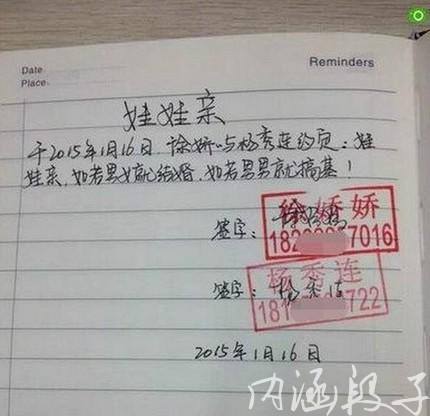 Date
Place
Reminders
娃娃亲
于2015年1月16日,徐娇娇与杨秀连约定:娃
娃亲,如若男女就结婚,如若男男就搞基!
签字:
徐娇娇
18 7016
签字:杨秀连
杨秀连
18 722
2015年1月16日
内涵段子